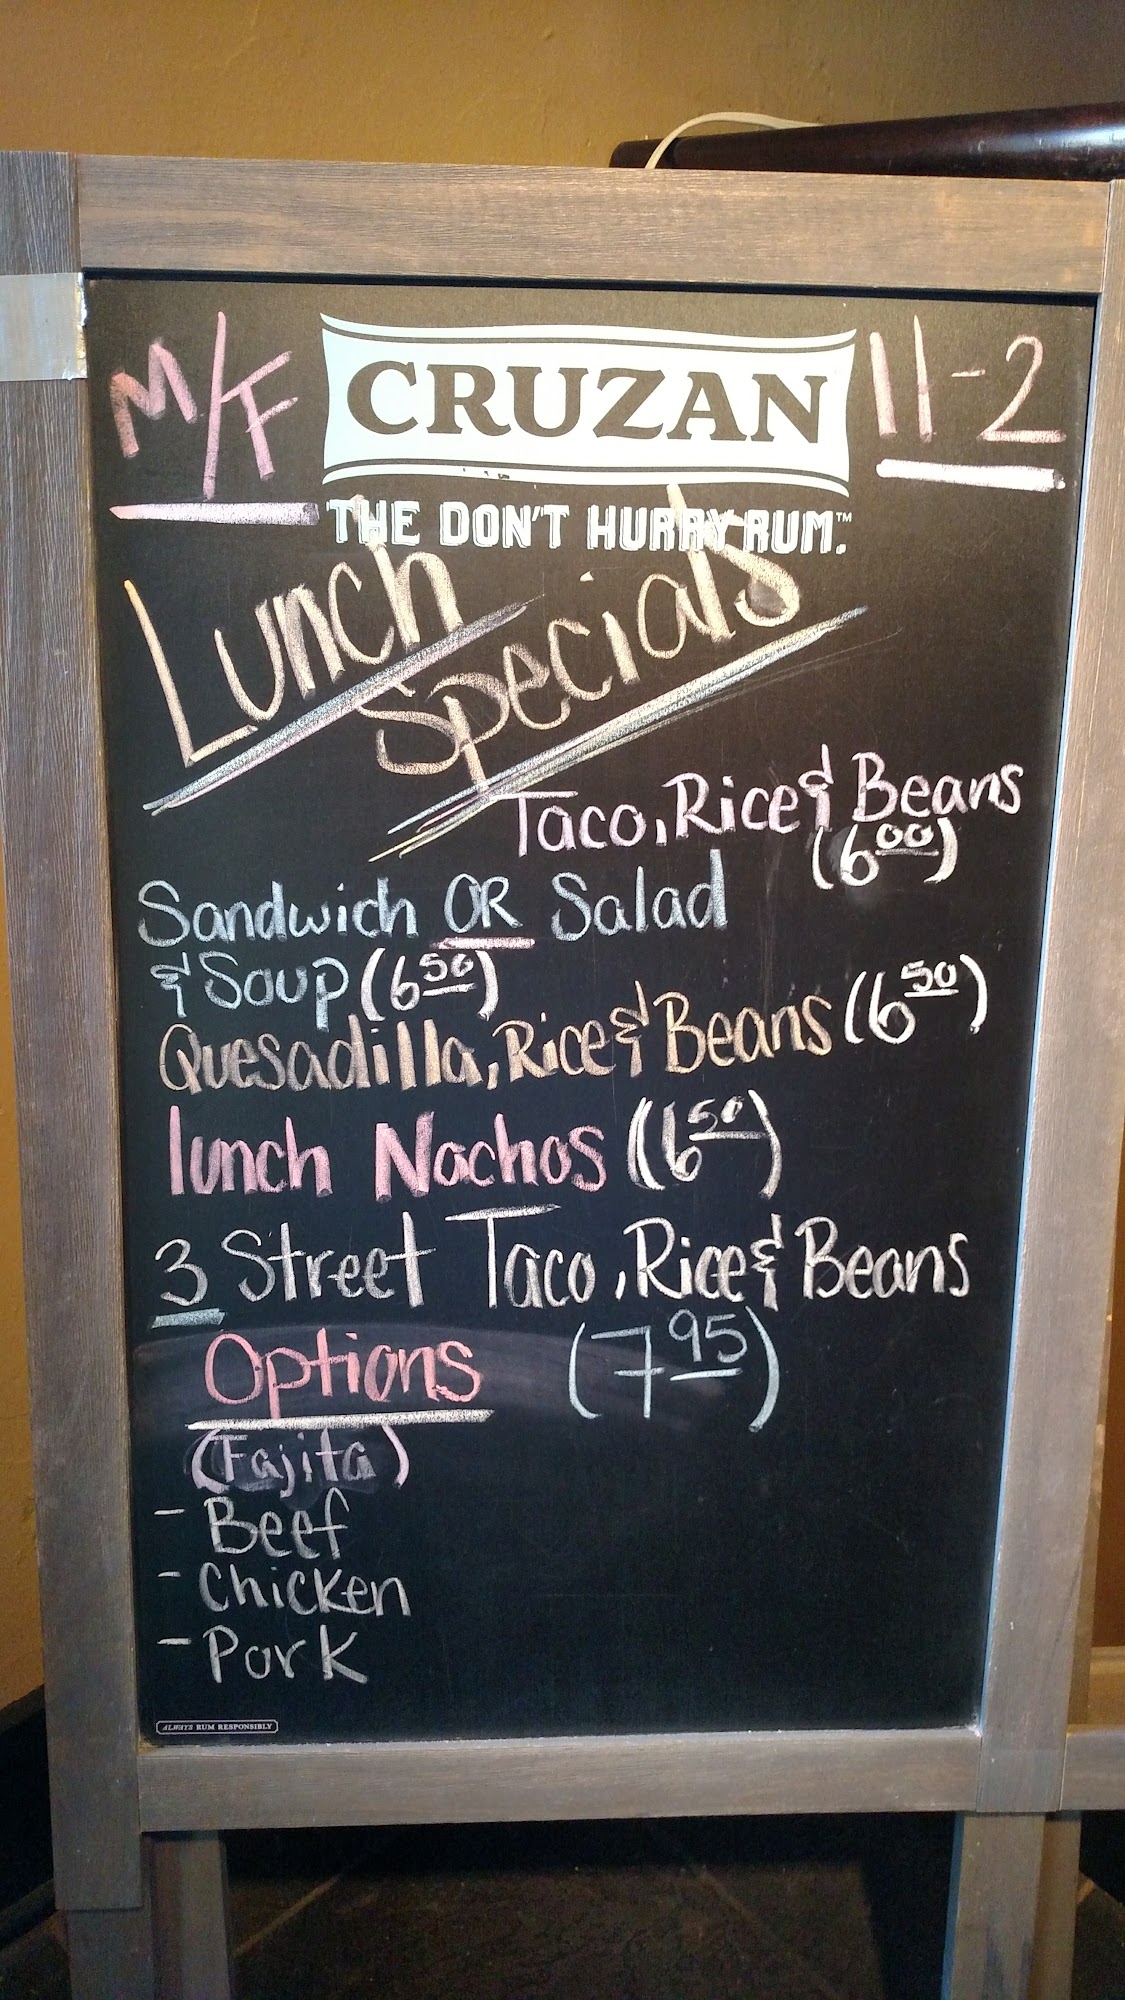 M/F
CRUZAN
11-2
THE DON'T HURRY RUM.™
Lunch
Specials
Taco, Rice & Beans
(6 00)
Sandwich OR Salad
& Soup (6 50)
Quesadilla, Rice & Beans (6 50)
lunch Nachos (6 50)
3 Street Taco, Rice & Beans
Options (7 95)
(Fajita)
- Beef
- Chicken
- Pork
ALWAYS RUM RESPONSIBLY